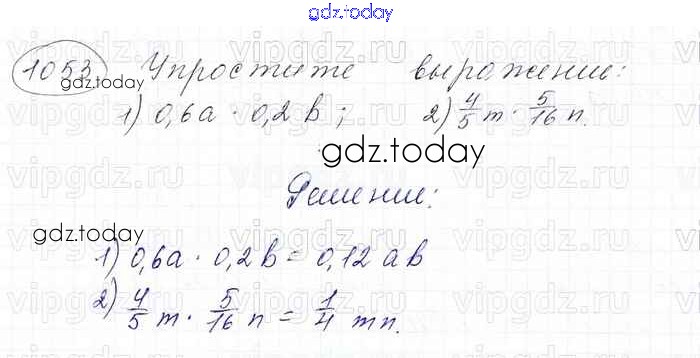 gdz.today
1053 Упростите выражение:
gdz.today
1) 0,6a · 0,2b; 2) 4/5 m · 5/16 n.
gdz.today
Решение:
gdz.today
1) 0,6a · 0,2b = 0,12 ab
2) 4/5 m · 5/16 n = 1/4 mn.
vipgdz.ru